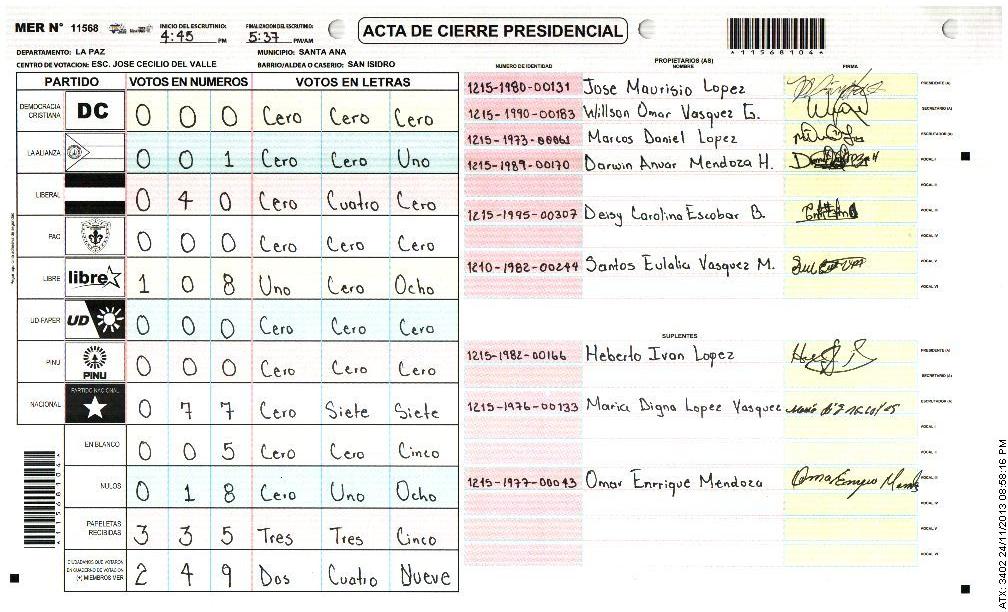 MER N° 11568
INICIO DEL ESCRUTINIO: 4:45 PM
FINALIZACION DEL ESCRUTINIO: 5:37 PM/AM
ACTA DE CIERRE PRESIDENCIAL
*11568104*
DEPARTAMENTO: LA PAZ
MUNICIPIO: SANTA ANA
CENTRO DE VOTACION: ESC. JOSE CECILIO DEL VALLE
BARRIO/ALDEA O CASERIO: SAN ISIDRO
PARTIDO VOTOS EN NUMEROS VOTOS EN LETRAS
DEMOCRACIA CRISTIANA DC 0 0 0 Cero Cero Cero
LA ALIANZA 0 0 1 Cero Cero Uno
LIBERAL 0 4 0 Cero Cuatro Cero
PAC 0 0 0 Cero Cero Cero
LIBRE libre 1 0 8 Uno Cero Ocho
UD-FAPER UD 0 0 0 Cero Cero Cero
PINU PINU 0 0 0 Cero Cero Cero
NACIONAL PARTIDO NACIONAL 0 7 7 Cero Siete Siete
EN BLANCO 0 0 5 Cero Cero Cinco
NULOS 0 1 8 Cero Uno Ocho
PAPELETAS RECIBIDAS 3 3 5 Tres Tres Cinco
CIUDADANOS QUE VOTARON EN CUADERNO DE VOTACION (+) MIEMBROS MER 2 4 9 Dos Cuatro Nueve
*11568104*
PROPIETARIOS (AS)
NUMERO DE IDENTIDAD NOMBRE FIRMA
1215-1980-00131 Jose Maurisio Lopez PRESIDENTE (A)
1215-1990-00183 Willson Omar Vasquez G. SECRETARIO (A)
1215-1973-00061 Marcos Daniel Lopez ESCRUTADOR (A)
1215-1989-00170 Darwin Anuar Mendoza H. VOCAL I
VOCAL II
1215-1995-00307 Deisy Carolina Escobar B. VOCAL III
VOCAL IV
1210-1982-00244 Santos Eulalia Vasquez M. VOCAL V
VOCAL VI
SUPLENTES
1215-1982-00166 Heberto Ivan Lopez PRESIDENTE (A)
SECRETARIO (A)
1215-1976-00133 Marica Digna Lopez Vasquez ESCRUTADOR (A)
VOCAL I
VOCAL II
1215-1977-00043 Omar Enrrique Mendoza VOCAL III
VOCAL IV
VOCAL V
VOCAL VI
ATX: 3402 24/11/2013 08:58:16 PM